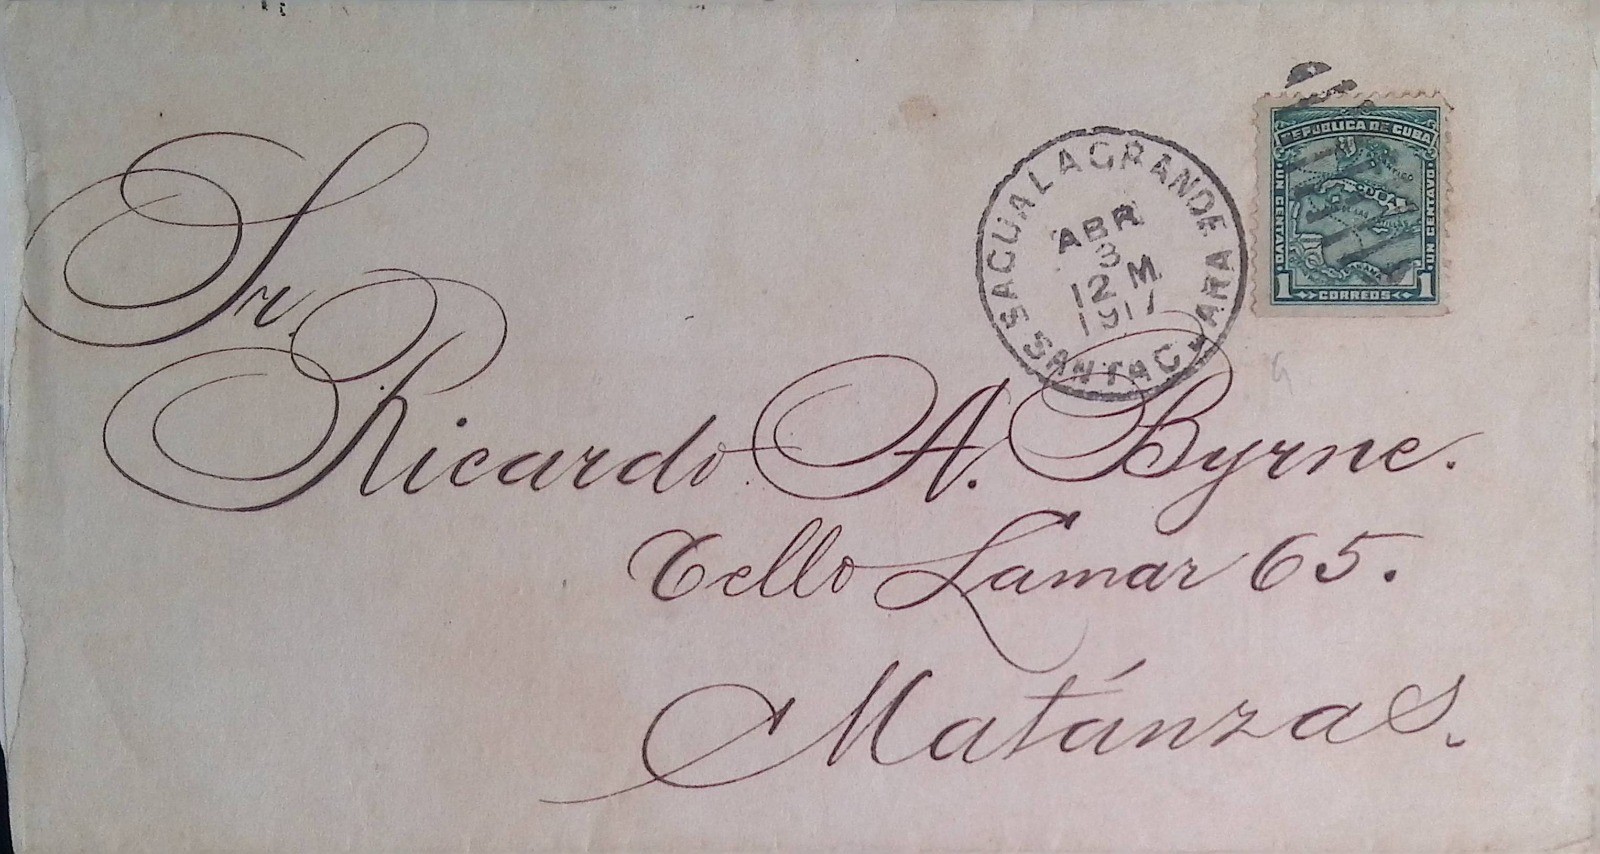 REPUBLICA DE CUBA
UN CENTAVO
UN CENTAVO
CUBA
1 CORREOS 1
SAGUA LA GRANDE
SANTA CLARA
ABR
3
12 M
1917
Sr.
Ricardo A. Byrne.
Tello Lamar 65.
Matánzas.